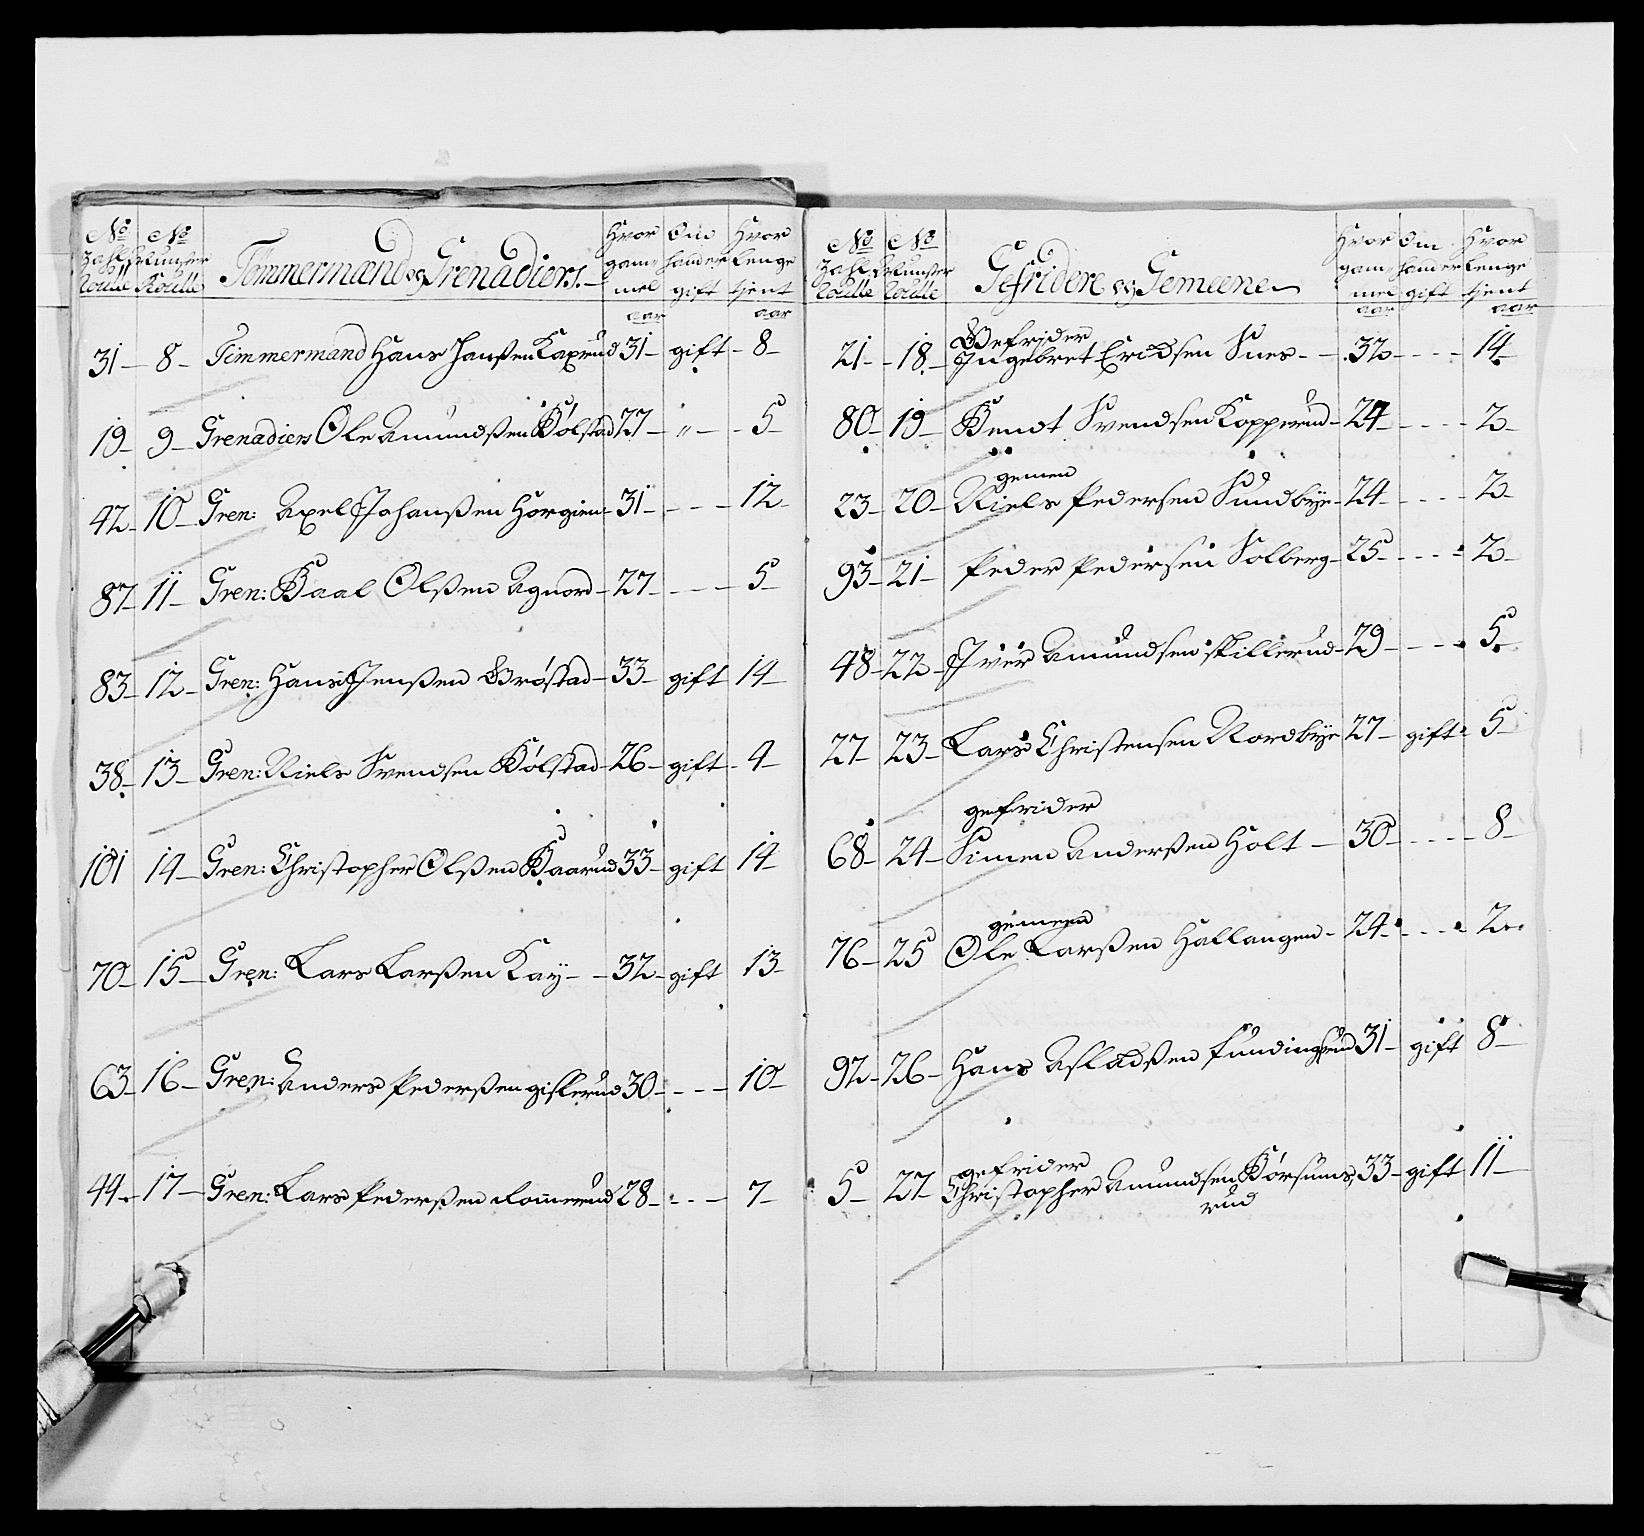 No Zahl Roulle No Munster Roulle Tömmermand og Grenadiers. Hvor gammel aar Om hand er gift Hvor lenge tjent aar
31 - 8 - Timmermand Hans Hanßen Kaxrud 31 - gift - 8 -
19 - 9 - Grenadiers Ole Amundßen Bølstad 27 - " - 5 -
42 - 10 - Gren: Axel Johanßen Horgien - 31 - - - - 12 -
87 - 11 - Gren: Paal Olßen Agnord - 27 - - - - 5 -
83 - 12 - Gren: Hans Jenßen Brøstad - 33 - gift 14 -
38 - 13 - Gren: Niels Svendsen Bølstad - 26 - gift - 4 -
101 14 - Gren: Christopher Olßen Kaarud 33 - gift 14 -
70 - 15 - Gren: Lars Larßen Kaÿ - - 32 - gift 13 -
63 - 16 - Gren: Anders Pederßen gislerud 30 - - - - 10 -
44 - 17 - Gren: Lars Pederßen Romerud 28 - - - - 7 -
No Zahl Roulle No Munster Roulle Gefridere og Gemeene Hvor gammel aar Om hand er gift Hvor lenge tjent aar
Gefrider
21 - 18 - Ingebret Ericksen Sues - - 32 - - - - 14
80 - 19 - Bendt Svendsen Kopperud - 24 - - - - 2 -
gemen
23 - 20 - Niels Pedersen Sundbÿe - 24 - - - - 2 -
93 - 21 - Peder Pedersen Solberg - 25 - - - - 2 -
48 - 22 - Iver Amundsen Skillerud - 29 - - - - 5
27 - 23 - Lars Christensen Nordbÿe 27 - gift - 5 -
gefrider
68 - 24 - Simen Anderßen Holt - 30 - - - - 8 -
gemeen
76 - 25 Ole Larßen Hallangen - 24 - - - - 2
92 - 26 - Hans Aslackßen Fundingsrud 31 - gift 8 -
gefrider
5 - 27 - Christopher Amundsen Korsums 33 - gift 11 -
rud